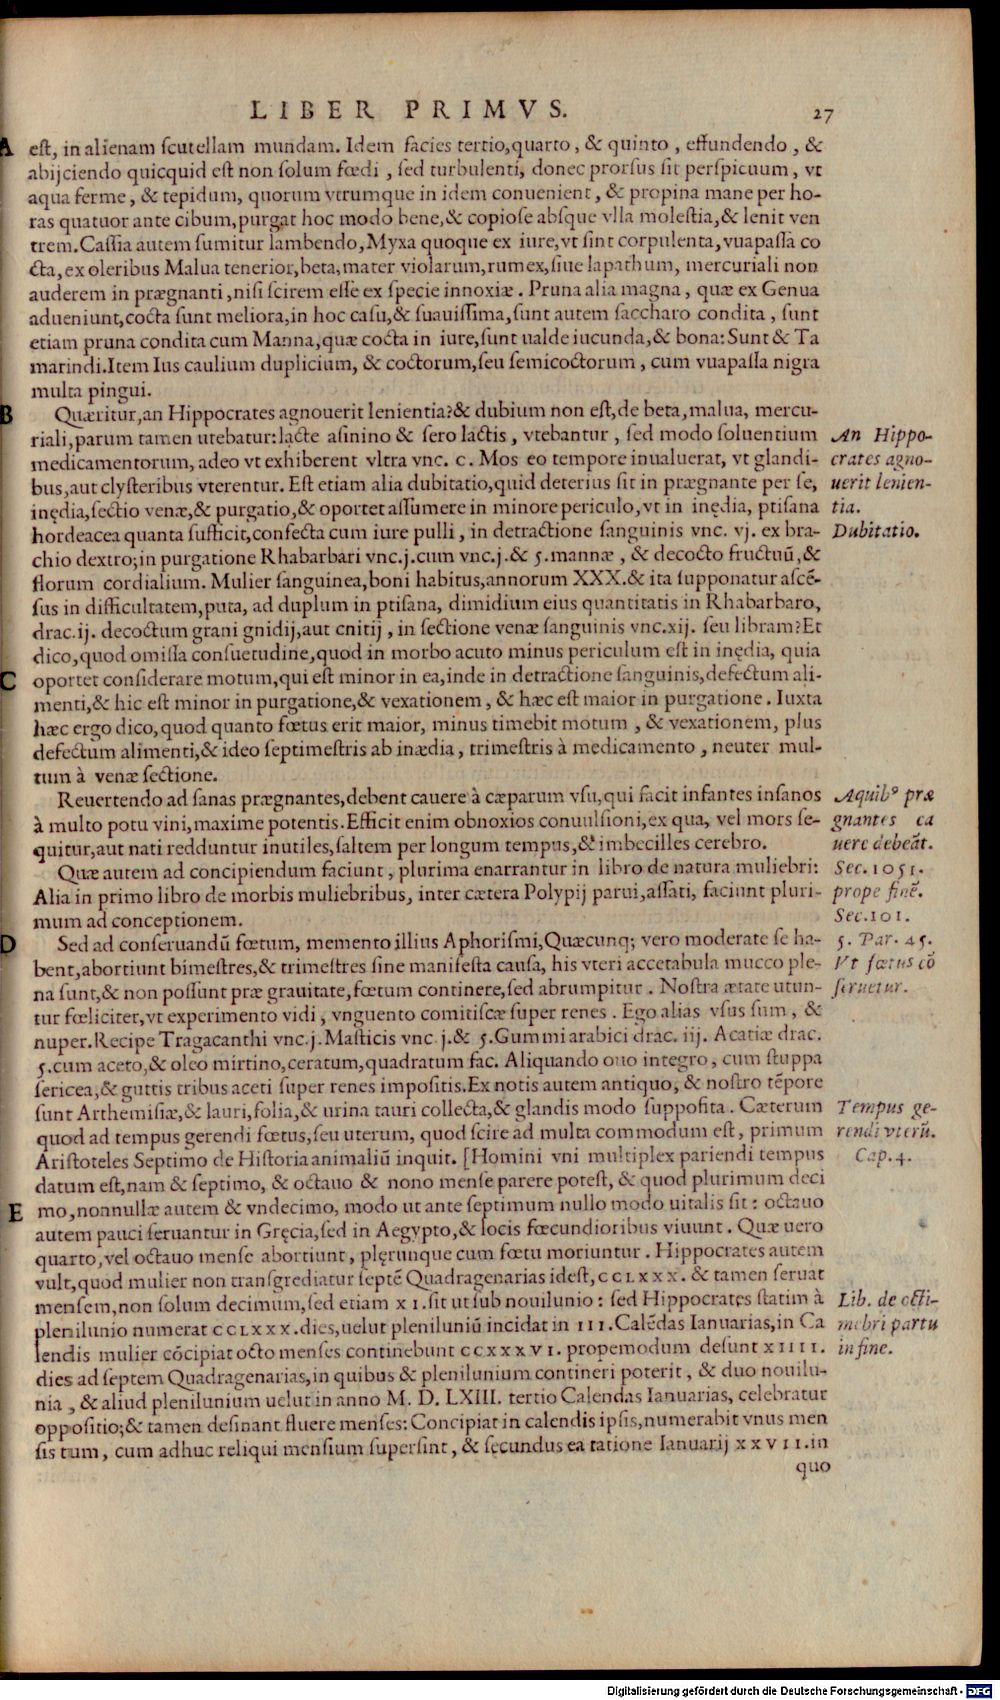 LIBER PRIMVS. 27
A est, in alienam scutellam mundam. Idem facies tertio, quarto, & quinto, effundendo, &
abijciendo quicquid est non solum fœdi, sed turbulenti, donec prorsus sit perspicuum, vt
aqua ferme, & tepidum, quorum vtrumque in idem conuenient, & propina mane per ho-
ras quatuor ante cibum, purgat hoc modo bene, & copiose absque vlla molestia, & lenit ven
trem. Cassia autem sumitur lambendo, Myxa quoque ex iure, vt sint corpulenta, vuapassa co
cta, ex oleribus Malua tenerior, beta, mater violarum, rumex, siue lapathum, mercuriali non
auderem in prægnanti, nisi scirem esse ex specie innoxiæ. Pruna alia magna, quæ ex Genua
adueniunt, cocta sunt meliora, in hoc casu, & suauissima, sunt autem saccharo condita, sunt
etiam pruna condita cum Manna, quæ cocta in iure, sunt ualde iucunda, & bona: Sunt & Ta
marindi. Item Ius caulium duplicium, & coctorum, seu semicoctorum, cum vuapassa nigra
multa pingui.
B Quæritur, an Hippocrates agnouerit lenientia? & dubium non est, de beta, malua, mercu-
riali, parum tamen utebatur: lacte asinino & sero lactis, vtebantur, sed modo soluentium
An Hippo-
medicamentorum, adeo vt exhiberent vltra vnc. c. Mos eo tempore inualuerat, vt glandi-
crates agno-
bus, aut clysteribus vterentur. Est etiam alia dubitatio, quid deterius sit in prægnante per se,
uerit lenien-
inędia, sectio venæ, & purgatio, & oportet assumere in minore periculo, vt in inędia, ptisana
tia.
hordeacea quanta sufficit, confecta cum iure pulli, in detractione sanguinis vnc. vj. ex bra-
Dubitatio.
chio dextro; in purgatione Rhabarbari vnc. j. cum vnc. j. & 5. mannæ, & decocto fructuũ, &
florum cordialium. Mulier sanguinea, boni habitus, annorum XXX. & ita supponatur ascẽ-
sus in difficultatem, puta, ad duplum in ptisana, dimidium eius quantitatis in Rhabarbaro,
drac. ij. decoctum grani gnidij, aut cnitij, in sectione venæ sanguinis vnc. xij. seu libram? Et
dico, quod omissa consuetudine, quod in morbo acuto minus periculum est in inędia, quia
C oportet considerare motum, qui est minor in ea, inde in detractione sanguinis, defectum ali-
menti, & hic est minor in purgatione, & vexationem, & hæc est maior in purgatione. Iuxta
hæc ergo dico, quod quanto fœtus erit maior, minus timebit motum, & vexationem, plus
defectum alimenti, & ideo septimestris ab inædia, trimestris à medicamento, neuter mul-
tum à venæ sectione.
Reuertendo ad sanas prægnantes, debent cauere à cæparum vsu, qui facit infantes insanos
Aquibꝰ præ
à multo potu vini, maxime potentis. Efficit enim obnoxios conuulsioni, ex qua, vel mors se-
gnantes ca
quitur, aut nati redduntur inutiles, saltem per longum tempus, & imbecilles cerebro.
uere debeãt.
Quæ autem ad concipiendum faciunt, plurima enarrantur in libro de natura muliebri:
Sec. 1051.
Alia in primo libro de morbis muliebribus, inter cætera Polypij parui, assati, faciunt pluri-
prope finẽ.
mum ad conceptionem.
Sec. 101.
D Sed ad conseruandũ fœtum, memento illius Aphorismi, Quæcunq; vero moderate se ha-
5. Par. 45.
bent, abortiunt bimestres, & trimestres sine manifesta causa, his vteri accetabula mucco ple-
Vt fœtus cõ
na sunt, & non possunt præ grauitate, fœtum continere, sed abrumpitur. Nostra ætate utun-
seruetur.
tur fœliciter, vt experimento vidi, vnguento comitiscæ super renes. Ego alias vsus sum, &
nuper. Recipe Tragacanthi vnc. j. Masticis vnc. j. & 5. Gummi arabici drac. iij. Acatiæ drac.
5. cum aceto, & oleo mirtino, ceratum, quadratum fac. Aliquando ouo integro, cum stuppa
sericea, & guttis tribus aceti super renes impositis. Ex notis autem antiquo, & nostro tẽpore
sunt Arthemisiæ, & lauri, folia, & urina tauri collecta, & glandis modo supposita. Cæterum
Tempus ge-
quod ad tempus gerendi fœtus, seu uterum, quod scire ad multa commodum est, primum
rendi vterũ.
Aristoteles Septimo de Historia animaliũ inquit. [Homini vni multiplex pariendi tempus
Cap. 4.
datum est, nam & septimo, & octauo & nono mense parere potest, & quod plurimum deci
E mo, nonnullæ autem & vndecimo, modo ut ante septimum nullo modo uitalis sit: octauo
autem pauci seruantur in Gręcia, sed in Aegypto, & locis fœcundioribus viuunt. Quæ uero
quarto, vel octauo mense abortiunt, plęrunque cum fœtu moriuntur. Hippocrates autem
vult, quod mulier non transgrediatur septẽ Quadragenarias idest, CCLXXX. & tamen seruat
mensem, non solum decimum, sed etiam XI. sit ut sub nouilunio: sed Hippocrates statim à
Lib. de octi-
plenilunio numerat CCLXXX. dies, uelut pleniluniũ incidat in III. Calẽdas Ianuarias, in Ca
mebri partu
lendis mulier cõcipiat octo menses continebunt CCXXXVI. propemodum desunt XIIII.
in fine.
dies ad septem Quadragenarias, in quibus & plenilunium contineri poterit, & duo nouilu-
nia, & aliud plenilunium uelut in anno M. D. LXIII. tertio Calendas Ianuarias, celebratur
oppositio; & tamen desinant fluere menses: Concipiat in calendis ipsis, numerabit vnus men
sis tum, cum adhuc reliqui mensium supersint, & secundus ea ratione Ianuarij XXVII. in
quo
Digitalisierung gefördert durch die Deutsche Forschungsgemeinschaft - DFG